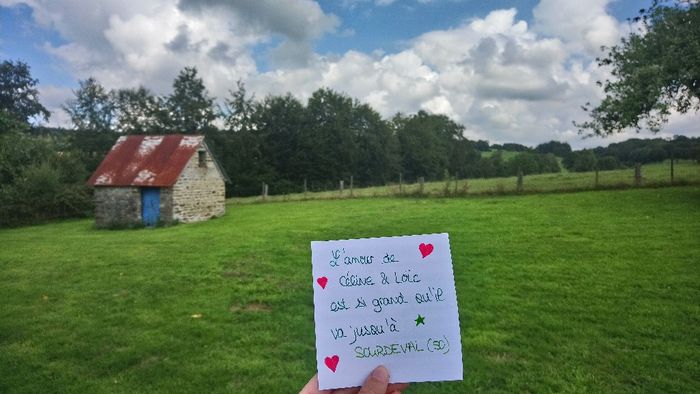 L'amour de
Céline & Loïc
est si grand qu'il
va jusqu'à
SOURDEVAL (50)